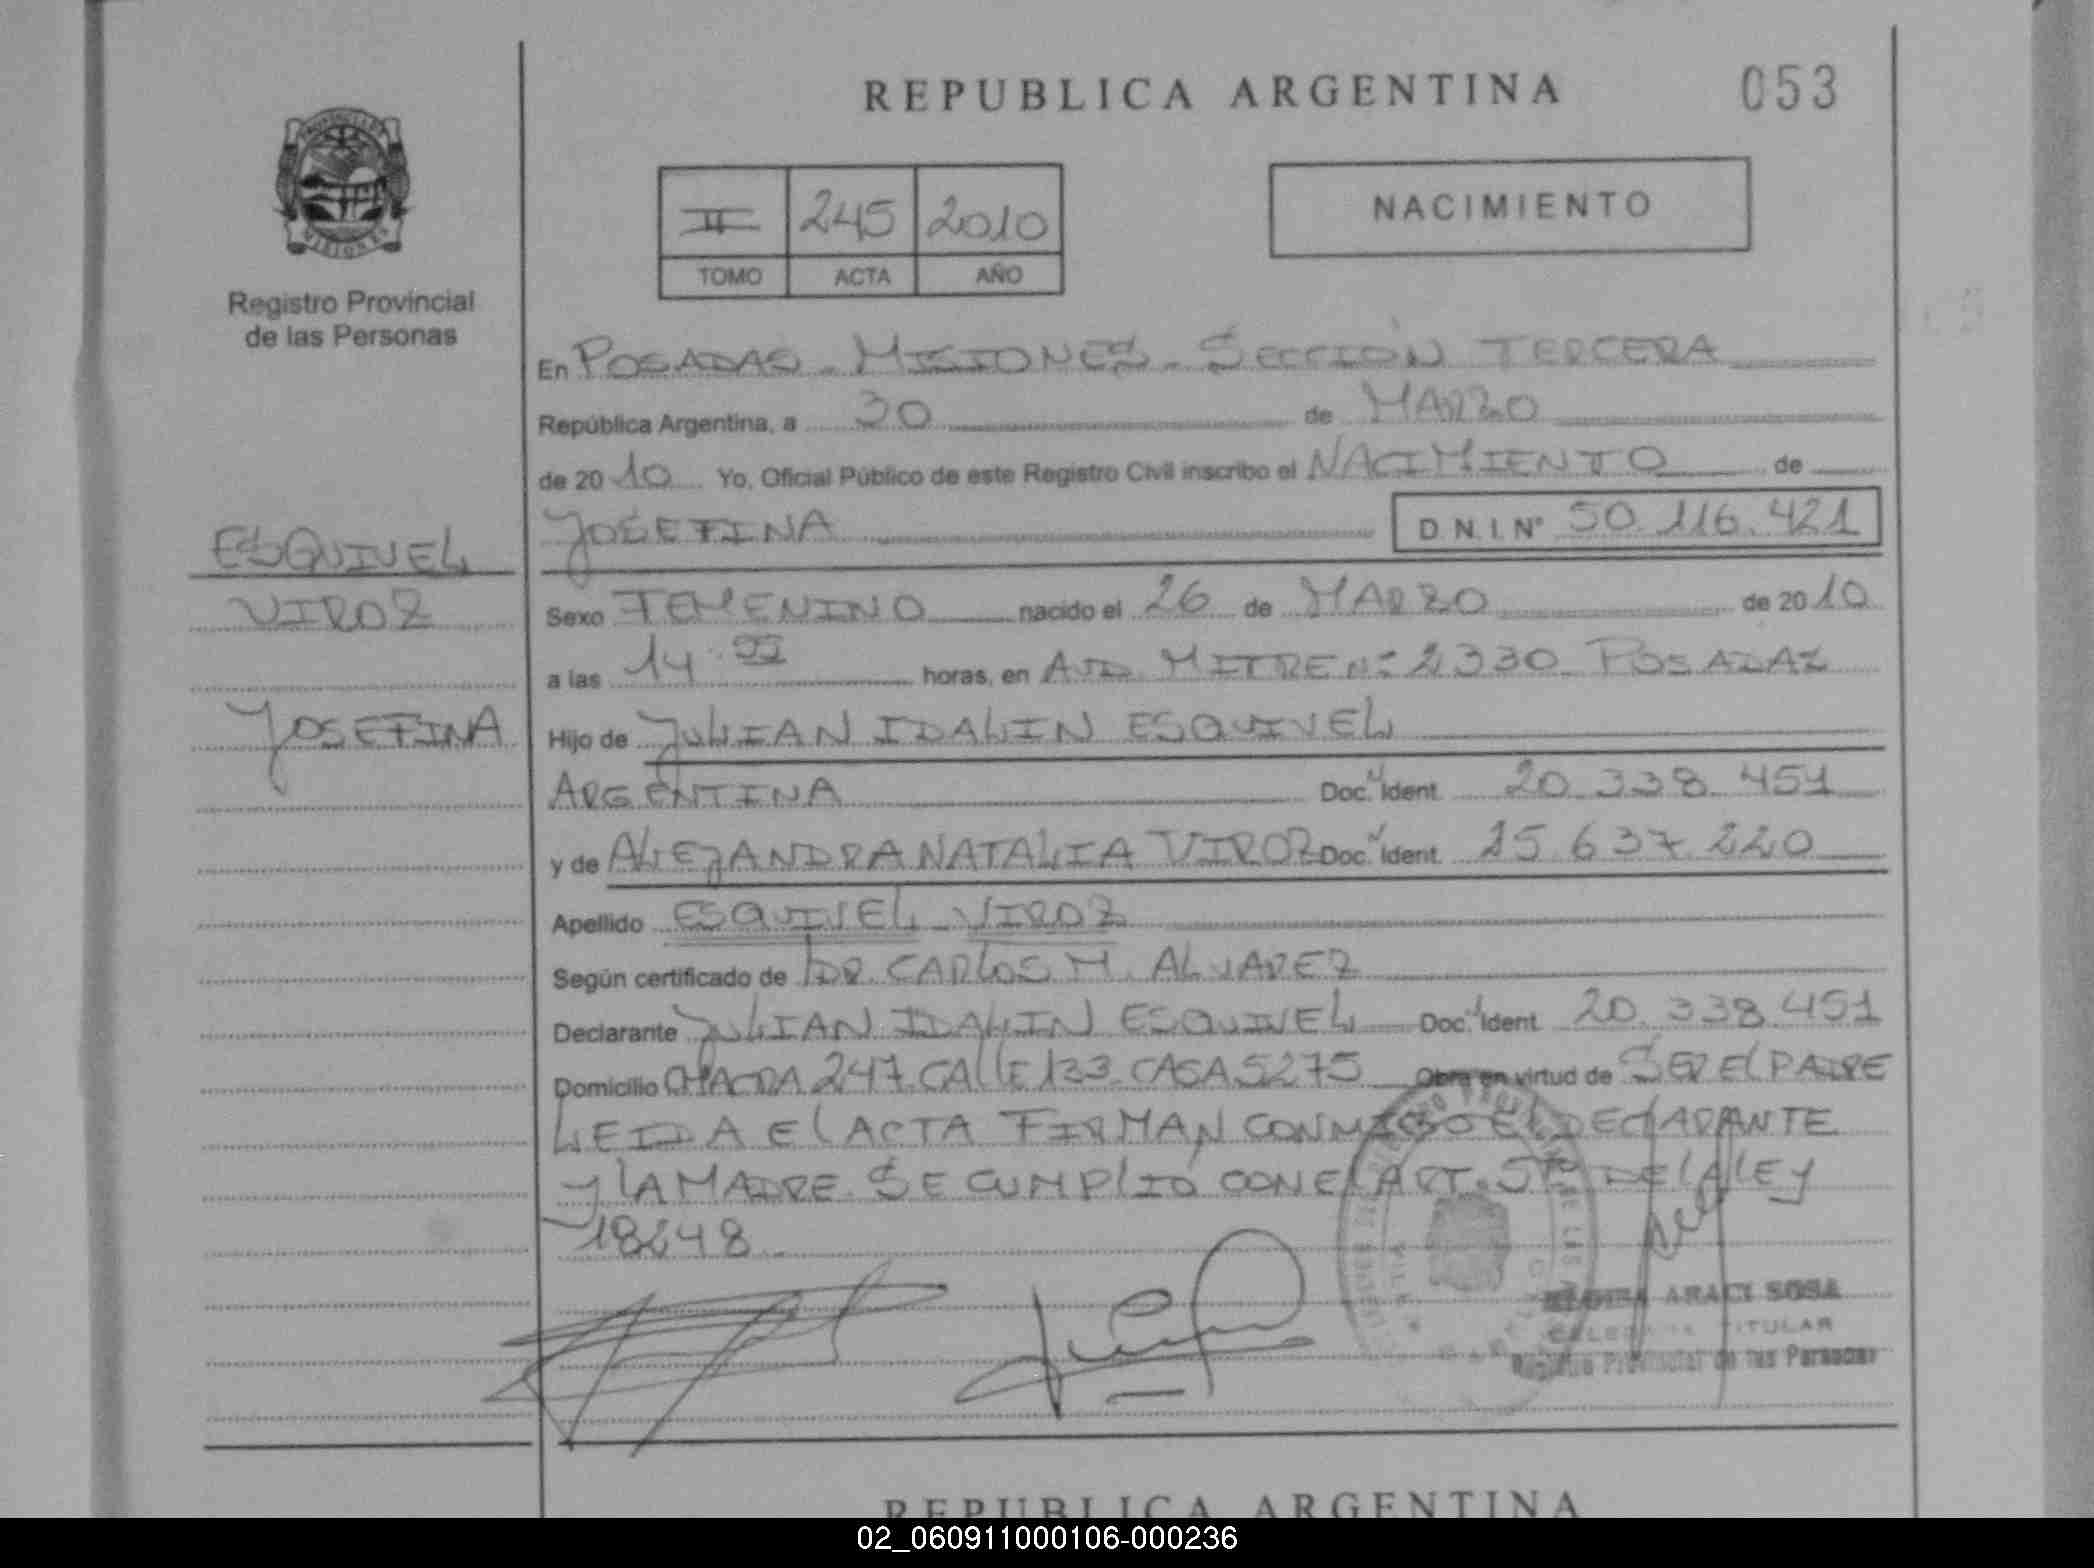 REPUBLICA ARGENTINA
053
PROVINCIA DE
MISIONES
Registro Provincial
de las Personas
II 245 2010
TOMO ACTA AÑO
NACIMIENTO
En POSADAS - MISIONES - SECCIÓN TERCERA
República Argentina, a 30 de MARZO
de 2010 Yo, Oficial Público de este Registro Civil inscribo el NACIMIENTO de
JOSEFINA D.N.I. N° 50.116.421
ESQUIVEL
VIROZ
JOSEFINA
Sexo FEMENINO nacido el 26 de MARZO de 2010
a las 14 horas, en AVD. MITRE N: 2330 POSADAS
Hijo de JULIAN IDALIN ESQUIVEL
ARGENTINA Doc. Ident. 20.338.451
y de ALEJANDRA NATALIA VIROZ Doc. Ident. 25.637.220
Apellido ESQUIVEL - VIROZ
Según certificado de DR. CARLOS M. ALVAREZ
Declarante JULIAN IDALIN ESQUIVEL Doc. Ident. 20.338.451
Domicilio CHACRA 247 CALLE 133 CASA 5275 Obra en virtud de SER EL PADRE
LEIDA EL ACTA FIRMAN CONMIGO EL DECLARANTE
Y LA MADRE SE CUMPLIO CON EL ART. 5 DE LA LEY
18248
ARACI SOSA
TITULAR
Registro Provincial de las Personas
REPUBLICA ARGENTINA
02_060911000106-000236